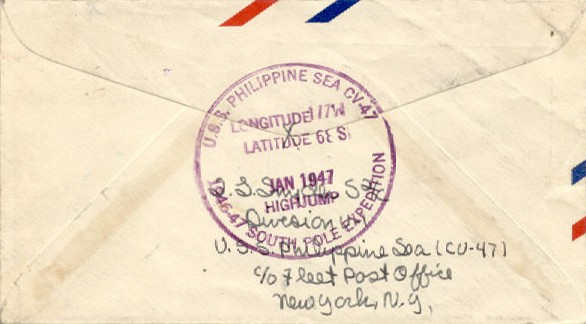 U.S.S. PHILIPPINE SEA CV-47
LONGITUDE 177W
LATITUDE 68 S
JAN 1947
HIGHJUMP
1946-47 SOUTH POLE EXPEDITION
Division
U.S.S. Philippine Sea (CV-47)
c/o Fleet Post Office
New York, N.Y.